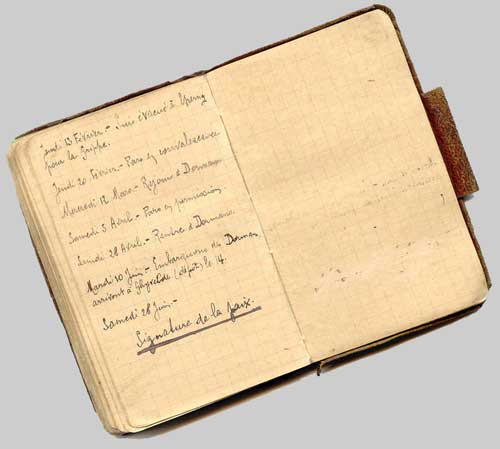 Jeudi 13 Février.- Suis évacué à Epernay
pour la Grippe.
Jeudi 20 Février.- Pars en convalescence
Mercredi 12 Mars.- Rejoins à Dormans
Samedi 5 Avril.- Pars en permission.
Lundi 28 Avril.- Rentre à Dormans.
Mardi 10 Juin.- Embarquons de Dormans
arrivons à (dépôt) le 14.
Samedi 28 Juin.-
Signature de la paix.